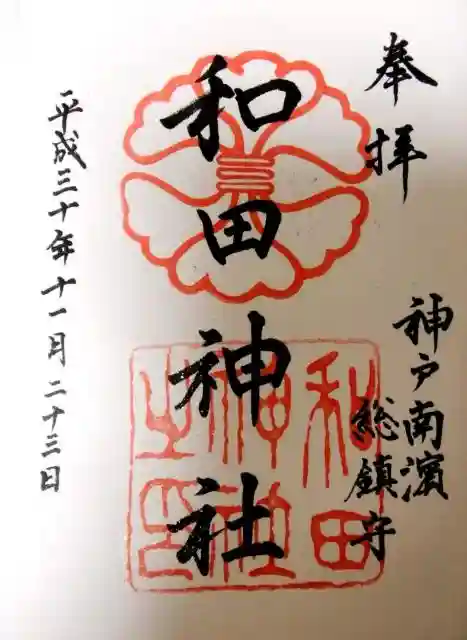 奉拝
神戸南濱
総鎮守
和田神社
和田
神社
之印
平成三十年十一月二十三日